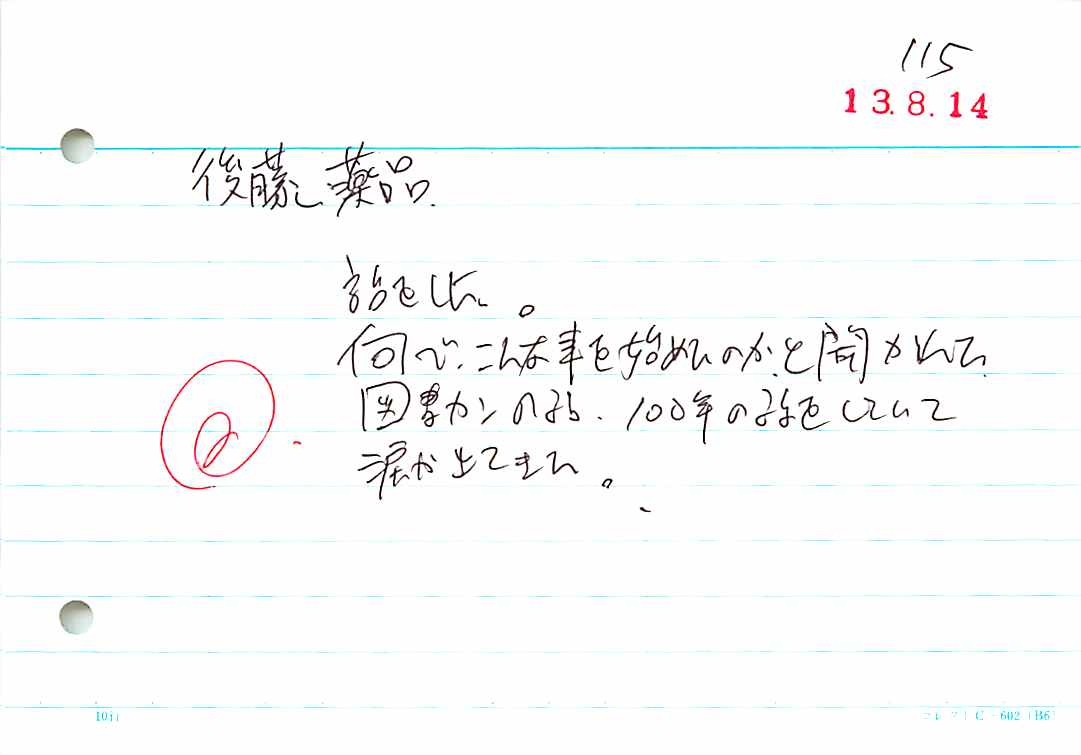 115
13.8.14
後藤薬品
話をした。
何で、こんな事を始めたのか、と聞かれて、
図書カンの話、100年の話をしていて
涙が出てきた。
10行
C-602 (B6)